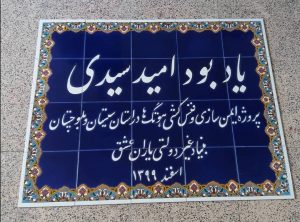 یادبود امید سیدی
پروژه ایمن سازی و فنس کشی هوتگ ها در استان سیستان و بلوچستان
بنیاد غیر دولتی یاران عشق
اسفند ۱۳۹۹